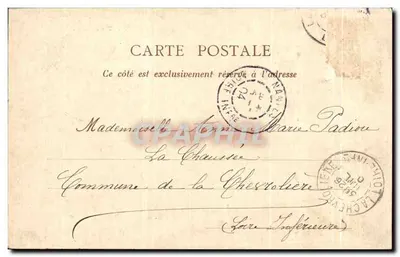 CARTE POSTALE
Ce côté est exclusivement réservé à l'adresse
NANTES
04
Mademoiselle Marie Padiou
CPAPHIL
La Chaussée
Commune de la Chevrolière
(Loire Inférieure)